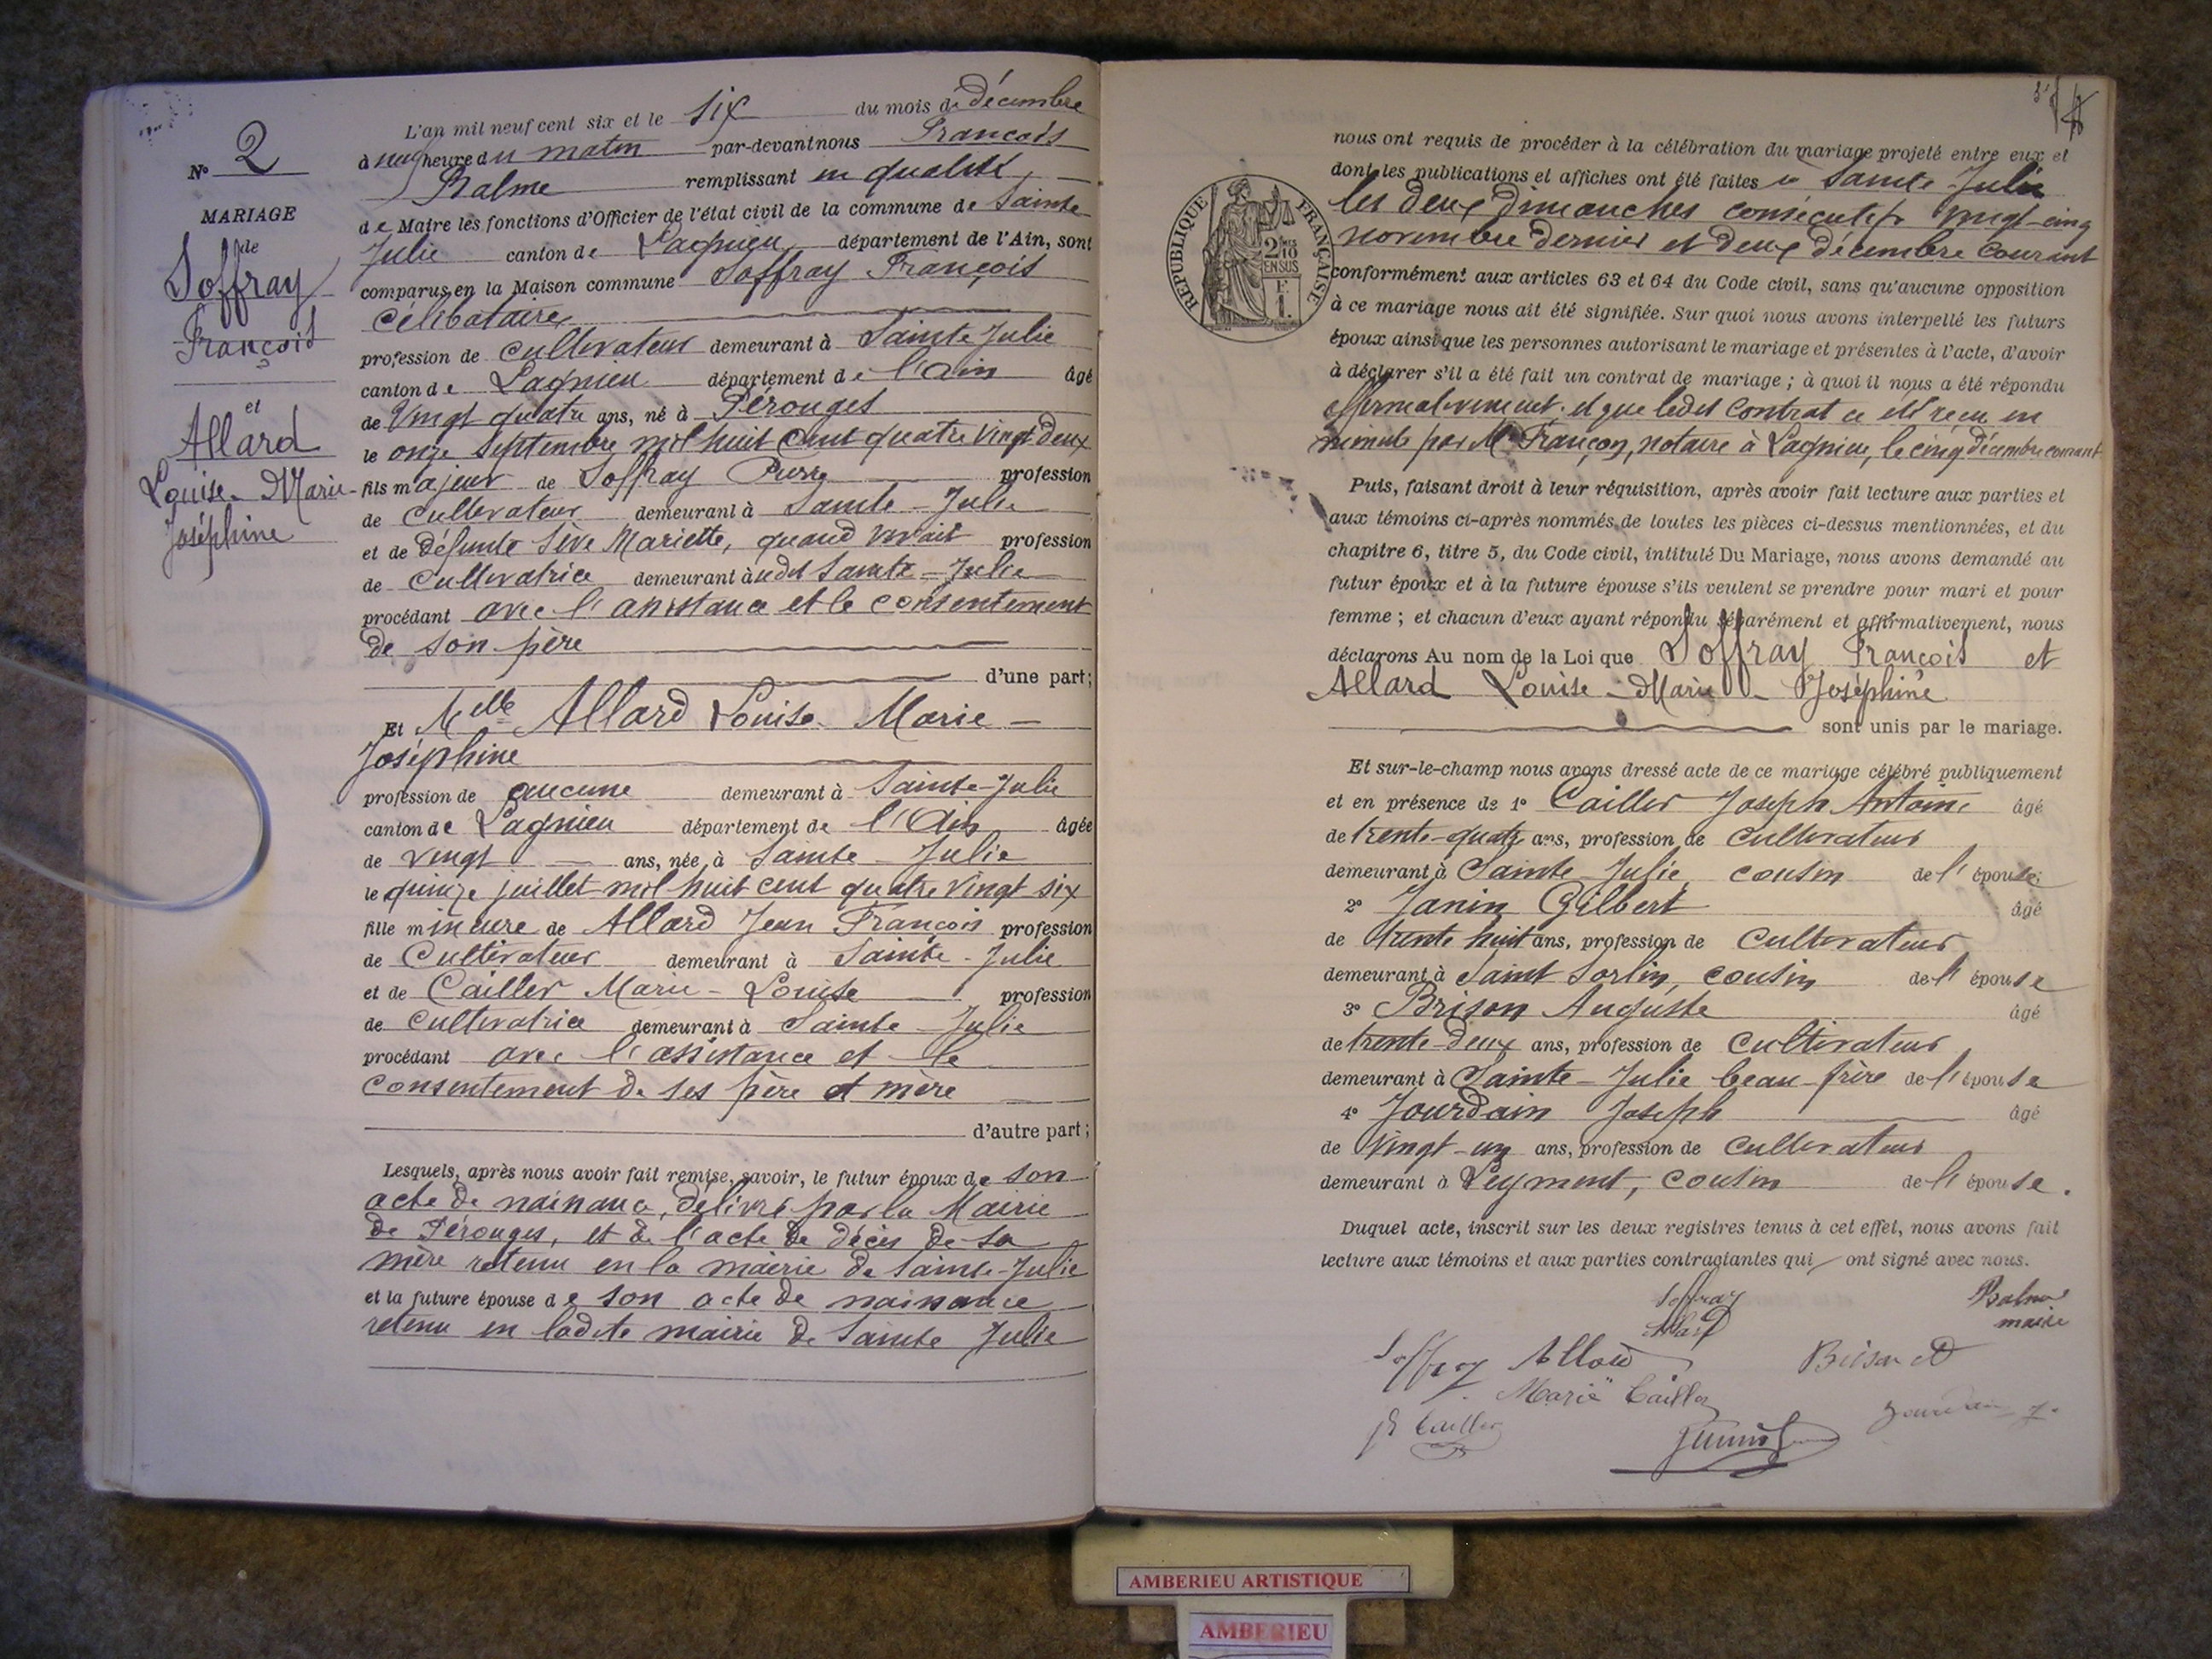 N° 2
MARIAGE
de
Soffray
François
et
Allard
Louise-Marie-
Joséphine
L'an mil neuf cent six et le six du mois de décembre
à neuf heure du matin par-devant nous François
Balme remplissant en qualité
de Maire les fonctions d'Officier de l'état civil de la commune de Sainte
Julie canton de Lagnieu département de l'Ain, sont
comparus en la Maison commune Soffray François
célibataire
profession de cultivateur demeurant à Sainte Julie
canton de Lagnieu département de l'Ain âgé
de Vingt quatre ans, né à Pérouges
le onze Septembre mil huit cent quatre vingt deux
fils majeur de Soffray Pierre profession
de cultivateur demeurant à Sainte-Julie
et de défunte Sève Mariette, quand vivait profession
de cultivatrice demeurant àudit Sainte-Julie
procédant avec l'assistance et le consentement
de son père
d'une part;
Et Melle Allard Louise Marie-
Joséphine
profession de aucune demeurant à Sainte-Julie
canton de Lagnieu département de l'Ain âgée
de vingt ans, née à Sainte-Julie
le quinze juillet mil huit cent quatre vingt six
fille mineure de Allard Jean François profession
de Cultivateur demeurant à Sainte-Julie
et de Cailler Marie-Louise profession
de cultivatrice demeurant à Sainte-Julie
procédant avec l'assistance et le
consentement de ses père et mère
d'autre part;
Lesquels, après nous avoir fait remise, savoir, le futur époux de son
acte de naissance, délivré par la Mairie
de Pérouges, et de l'acte de décès de sa
mère retenu en la mairie de Sainte-Julie
et la future épouse de son acte de naissance
retenu en ladite mairie de Sainte Julie
RÉPUBLIQUE FRANÇAISE
2/10 EN SUS
F. 1.
nous ont requis de procéder à la célébration du mariage projeté entre eux et
dont les publications et affiches ont été faites à Sainte-Julie
les deux Dimanches consécutifs vingt-cinq
novembre dernier et deux décembre courant
conformément aux articles 63 et 64 du Code civil, sans qu'aucune opposition
à ce mariage nous ait été signifiée. Sur quoi nous avons interpellé les futurs
époux ainsi que les personnes autorisant le mariage et présentes à l'acte, d'avoir
à déclarer s'il a été fait un contrat de mariage; à quoi il nous a été répondu
affirmativement. et que ledit contrat a été reçu en
minute par Me Françon, notaire à Lagnieu, le cinq décembre courant
Puis, faisant droit à leur réquisition, après avoir fait lecture aux parties et
aux témoins ci-après nommés de toutes les pièces ci-dessus mentionnées, et du
chapitre 6, titre 5, du Code civil, intitulé Du Mariage, nous avons demandé au
futur époux et à la future épouse s'ils veulent se prendre pour mari et pour
femme; et chacun d'eux ayant répondu séparément et affirmativement, nous
déclarons Au nom de la Loi que Soffray François et
Allard Louise-Marie-Joséphine
sont unis par le mariage.
Et sur-le-champ nous avons dressé acte de ce mariage célébré publiquement
et en présence de 1° Cailler Joseph Antoine âgé
de trente-quatre ans, profession de cultivateur
demeurant à Sainte-Julie, cousin de l'épouse
2° Janin Gilbert âgé
de trente huit ans, profession de cultivateur
demeurant à Saint Sorlin, cousin de l'épouse
3° Brison Auguste âgé
de trente-deux ans, profession de cultivateur
demeurant à Sainte-Julie beau-frère de l'épouse
4° Jourdain Joseph âgé
de Vingt-un ans, profession de cultivateur
demeurant à Leyment, cousin de l'épouse.
Duquel acte, inscrit sur les deux registres tenus à cet effet, nous avons fait
lecture aux témoins et aux parties contractantes qui ont signé avec nous.
Soffray Balme
Allard maire
Soffray Allard Brison
Marie Cailler
Cailler Jourdain J.
AMBERIEU ARTISTIQUE
AMBERIEU